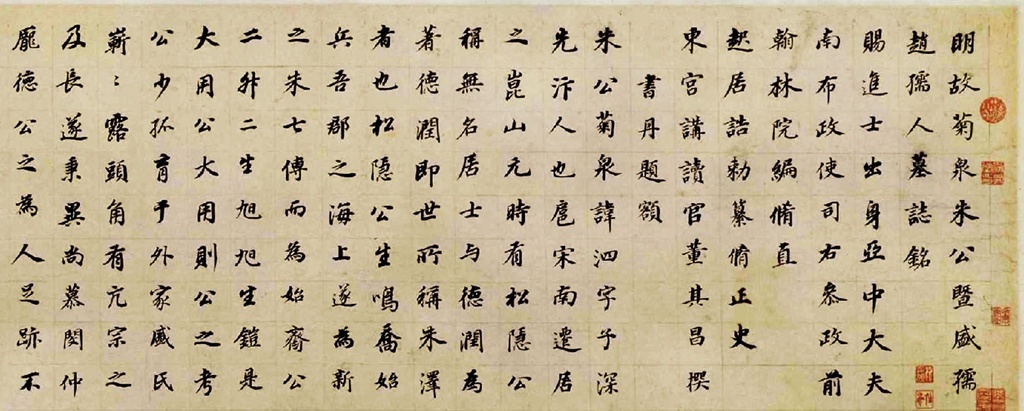 明故菊泉朱公暨盛孺
趙孺人墓誌銘
賜進士出身亞中大夫
南布政使司右叅政前
翰林院編脩直
起居誥勅纂脩正史
東宮講讀官董其昌撰
書丹題額
朱公菊泉諱泗字子深
先汴人也扈宋南遷居
之崑山元時有松隱公
稱無名居士与德潤為
著德潤即世所稱朱澤
者也松隱公生鳴喬始
兵吾郡之海上遂為新
之朱七傳而為始齋公
二升二生旭旭生鎧是
大用公大用則公之考
公少孤育于外家盛氏
嶄〻露頭角有亢宗之
及長遂秉異尚慕閔仲
龐德公之為人足跡不